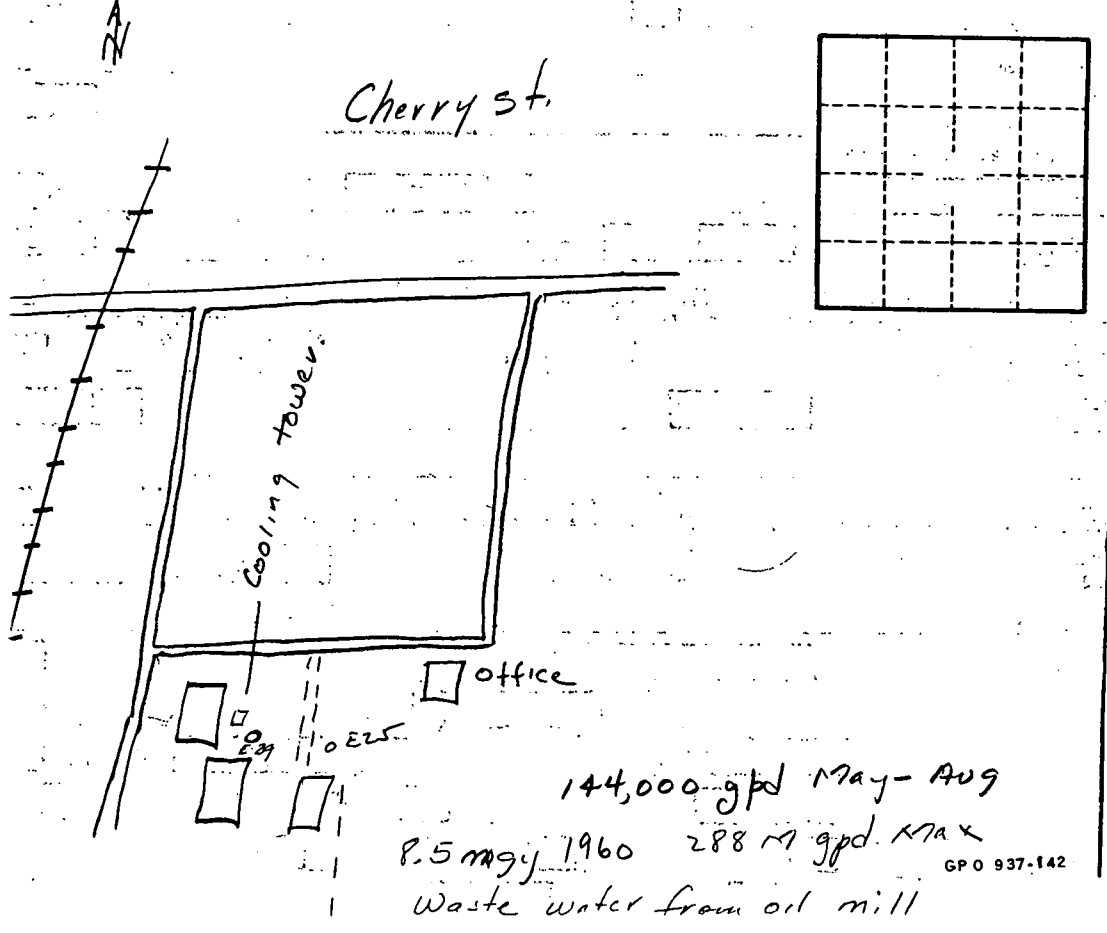 N
Cherry st.
Cooling tower.
office
E29
E25
144,000 gpd May - Aug
8.5 mgy 1960 288 M gpd. Max
GPO 937-142
Waste water from oil mill